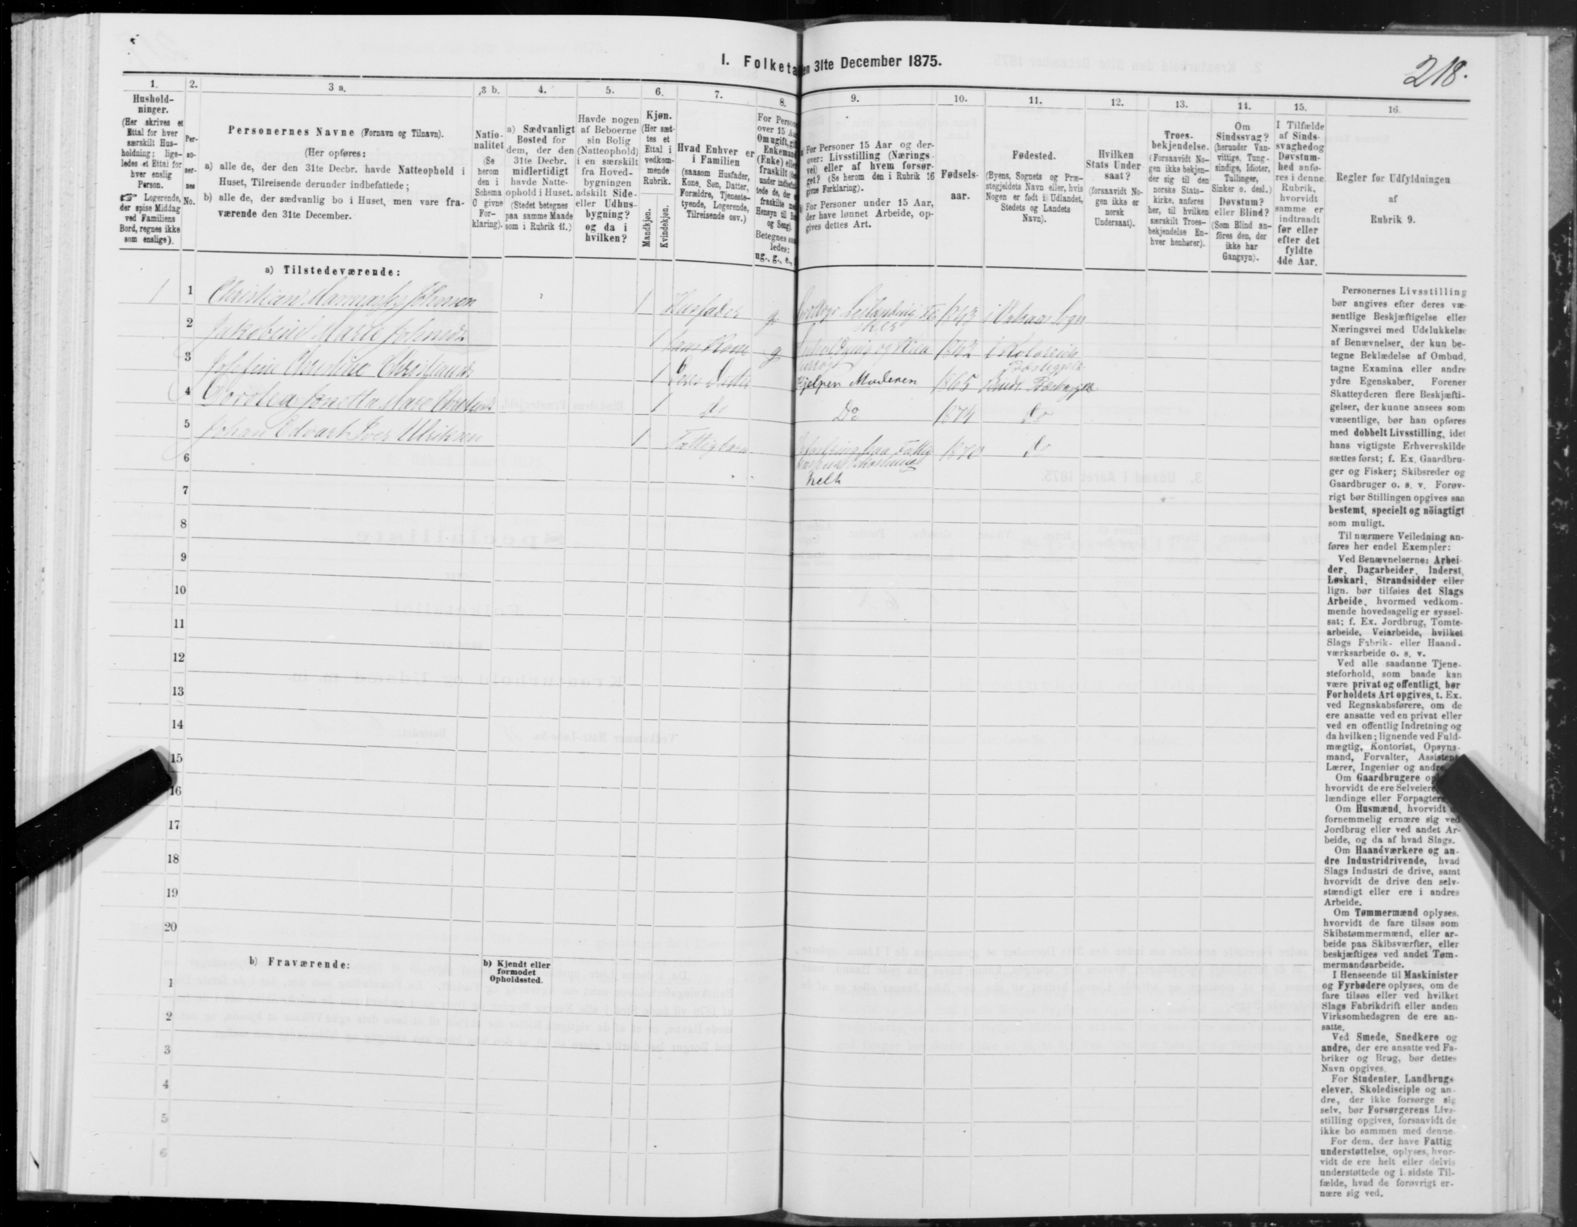 I. Folketa
en 31te December 1875.
218.
1.
2.
3 a.
3 b.
4.
5.
6.
7.
8.
9.
10.
11.
12.
13.
14.
15.
16.
Hushold-
ninger.
(Her skrives et
Ettal for hver
særskilt Hus-
holdning; lige-
ledes et Ettal for
hver enslig
Person.
Logerende,
der spise Middag
ved Familiens
Bord, regnes ikke
som enslige).
Per-
so-
ner-
nes
No.
Personernes Navne (Fornavn og Tilnavn).
(Her opføres:
a) alle de, der den 31te Decbr. havde Natteophold i
Huset, Tilreisende derunder indbefattede;
b) alle de, der sædvanlig bo i Huset, men vare fra-
værende den 31te December.
Natio-
nalitet
(Se
herom
den i
Schema
C givne
For-
klaring).
a) Sædvanligt
Bosted for
dem, der den
31te Decbr.
midlertidigt
havde Natte-
ophold i Huset.
(Stedet betegnes
paa samme Maade
som i Rubrik 11.)
Havde nogen
af Beboerne
sin Bolig
(Natteophold)
i en særskilt
fra Hoved-
bygningen
adskilt Side-
eller Udhus-
bygning?
og da i
hvilken?
Kjøn.
(Her sæt-
tes et
Ettal i
vedkom-
mende
Rubrik.
Mandkjøn.
Kvindekjøn.
Hvad Enhver er
i Familien
(saasom Husfader,
Kone, Søn, Datter,
Forældre, Tjeneste-
tyende, Logerende,
Tilreisende osv.)
For Person
over 15 Aa
Om ugift, gi
Enkeman
(Enke) elle
fraskilt
og Seng).
Betegnes
ledes:
ug., g., e.,
For Personer 15 Aar og der-
over: Livsstilling (Nærings-
vei) eller af hvem forsør-
get? (Se herom den i Rubrik 16
givne Forklaring).
For Personer under 15 Aar,
der have lønnet Arbeide, op-
gives dettes Art.
Fødsels-
aar.
Fødested.
(Byens, Sognets og Præ-
stegjeldets Navn eller, hvis
Nogen er født i Udlandet,
Stedets og Landets
Navn).
Hvilken
Stats Under-
saat?
(forsaavidt No-
gen ikke er
norsk
Undersaat).
Troes-
bekjendelse.
(Forsaavidt No-
gen ikke bekjen-
der sig til den
norske Stats-
kirke, anføres
her, til hvilken
særskilt Troes-
bekjendelse En-
hver henhører).
Om
Sindssvag?
(herunder Van-
vittige, Tung-
sindige, Idioter,
Tullinger,
Sinker o. desl.)
Døvstum?
eller Blind?
(Som Blind an-
føres den, der
ikke har
Gangsyn).
I Tilfælde
af Sinds-
svaghed og
Døvstum-
hed anfø-
res i denne
Rubrik,
hvorvidt
samme er
indtraadt
før eller
efter det
fyldte
4de Aar.
Regler for Udfyldningen
af
Rubrik 9.
a) Tilstedeværende:
1 1 1 Husfader g 1843
2 1 g 1842
3 1 Hjelpen Moderen 1865
4 1 do Do 1874 do
5 1 1870 do
6
7
8
9
10
11
12
13
14
15
16
17
18
19
20
b) Fraværende:
b) Kjendt eller
formodet
Opholdssted.
1
2
3
4
5
6
Personernes Livsstilling
bør angives efter deres væ-
sentlige Beskjæftigelse eller
Næringsvei med Udelukkelse
af Benævnelser, der kun be-
tegne Beklædelse af Ombud,
tagne Examina eller andre
ydre Egenskaber. Forener
Skatteyderen flere Beskjæfti-
gelser, der kunne ansees som
væsentlige, bør han opføres
med dobbelt Livsstilling, idet
hans vigtigste Erhvervskilde
sættes først; f. Ex. Gaardbru-
ger og Fisker; Skibsreder og
Gaardbruger o. s. v. Forøv-
rigt bør Stillingen opgives saa
bestemt, specielt og nöiagtigt
som muligt.
Til nærmere Veiledning an-
føres her endel Exempler:
Ved Benævnelserne: Arbei-
der, Dagarbeider, Inderst,
Løskarl, Strandsidder eller
lign. bør tilføies det Slags
Arbeide, hvormed vedkom-
mende hovedsagelig er syssel-
sat; f. Ex. Jordbrug, Tomte-
arbeide, Veiarbeide, hvilket
Slags Fabrik- eller Haand-
værksarbeide o. s. v.
Ved alle saadanne Tjene-
steforhold, som baade kan
være privat og offentligt, bør
Forholdets Art opgives, t. Ex.
ved Regnskabsførere, om de
ere ansatte ved en privat eller
ved en offentlig Indretning og
da hvilken; lignende ved Fuld-
mægtig, Kontorist, Opsyns-
mand, Forvalter, Assistent,
Lærer, Ingeniør og andre
Om Gaardbrugere og
hvorvidt de ere Selveiere,
lændinge eller Forpagtere
Om Husmænd, hvorvidt
fornemmelig ernære sig ved
Jordbrug eller ved andet Ar-
beide, og da af hvad Slags.
Om Haandværkere og an-
dre Industridrivende, hvad
Slags Industri de drive, samt
hvorvidt de drive den selv-
stændigt eller ere i andres
Arbeide.
Om Tømmermænd oplyses,
hvorvidt de fare tilsøs som
Skibstømmermænd, eller ar-
beide paa Skibsværfter, eller
beskjæftiges ved andet Tøm-
mermandsarbeide.
I Henseende til Maskinister
og Fyrbødere oplyses, om de
fare tilsøs eller ved hvilket
Slags Fabrikdrift eller anden
Virksomhedsgren de ere an-
satte.
Ved Smede, Snedkere og
andre, der ere ansatte ved Fa-
briker og Brug, bør dettes
Navn opgives.
For Studenter, Landbrugs-
elever, Skoledisciple og an-
dre, der ikke forsørge sig
selv, bør Forsørgerens Livs-
stilling opgives, forsaavidt de
ikke bo sammen med denne.
For dem, der have Fattig-
understøttelse, oplyses, hvor-
vidt de ere helt eller delvis
understøttede og i sidste Til-
fælde, hvad de forøvrigt er-
nære sig ved.